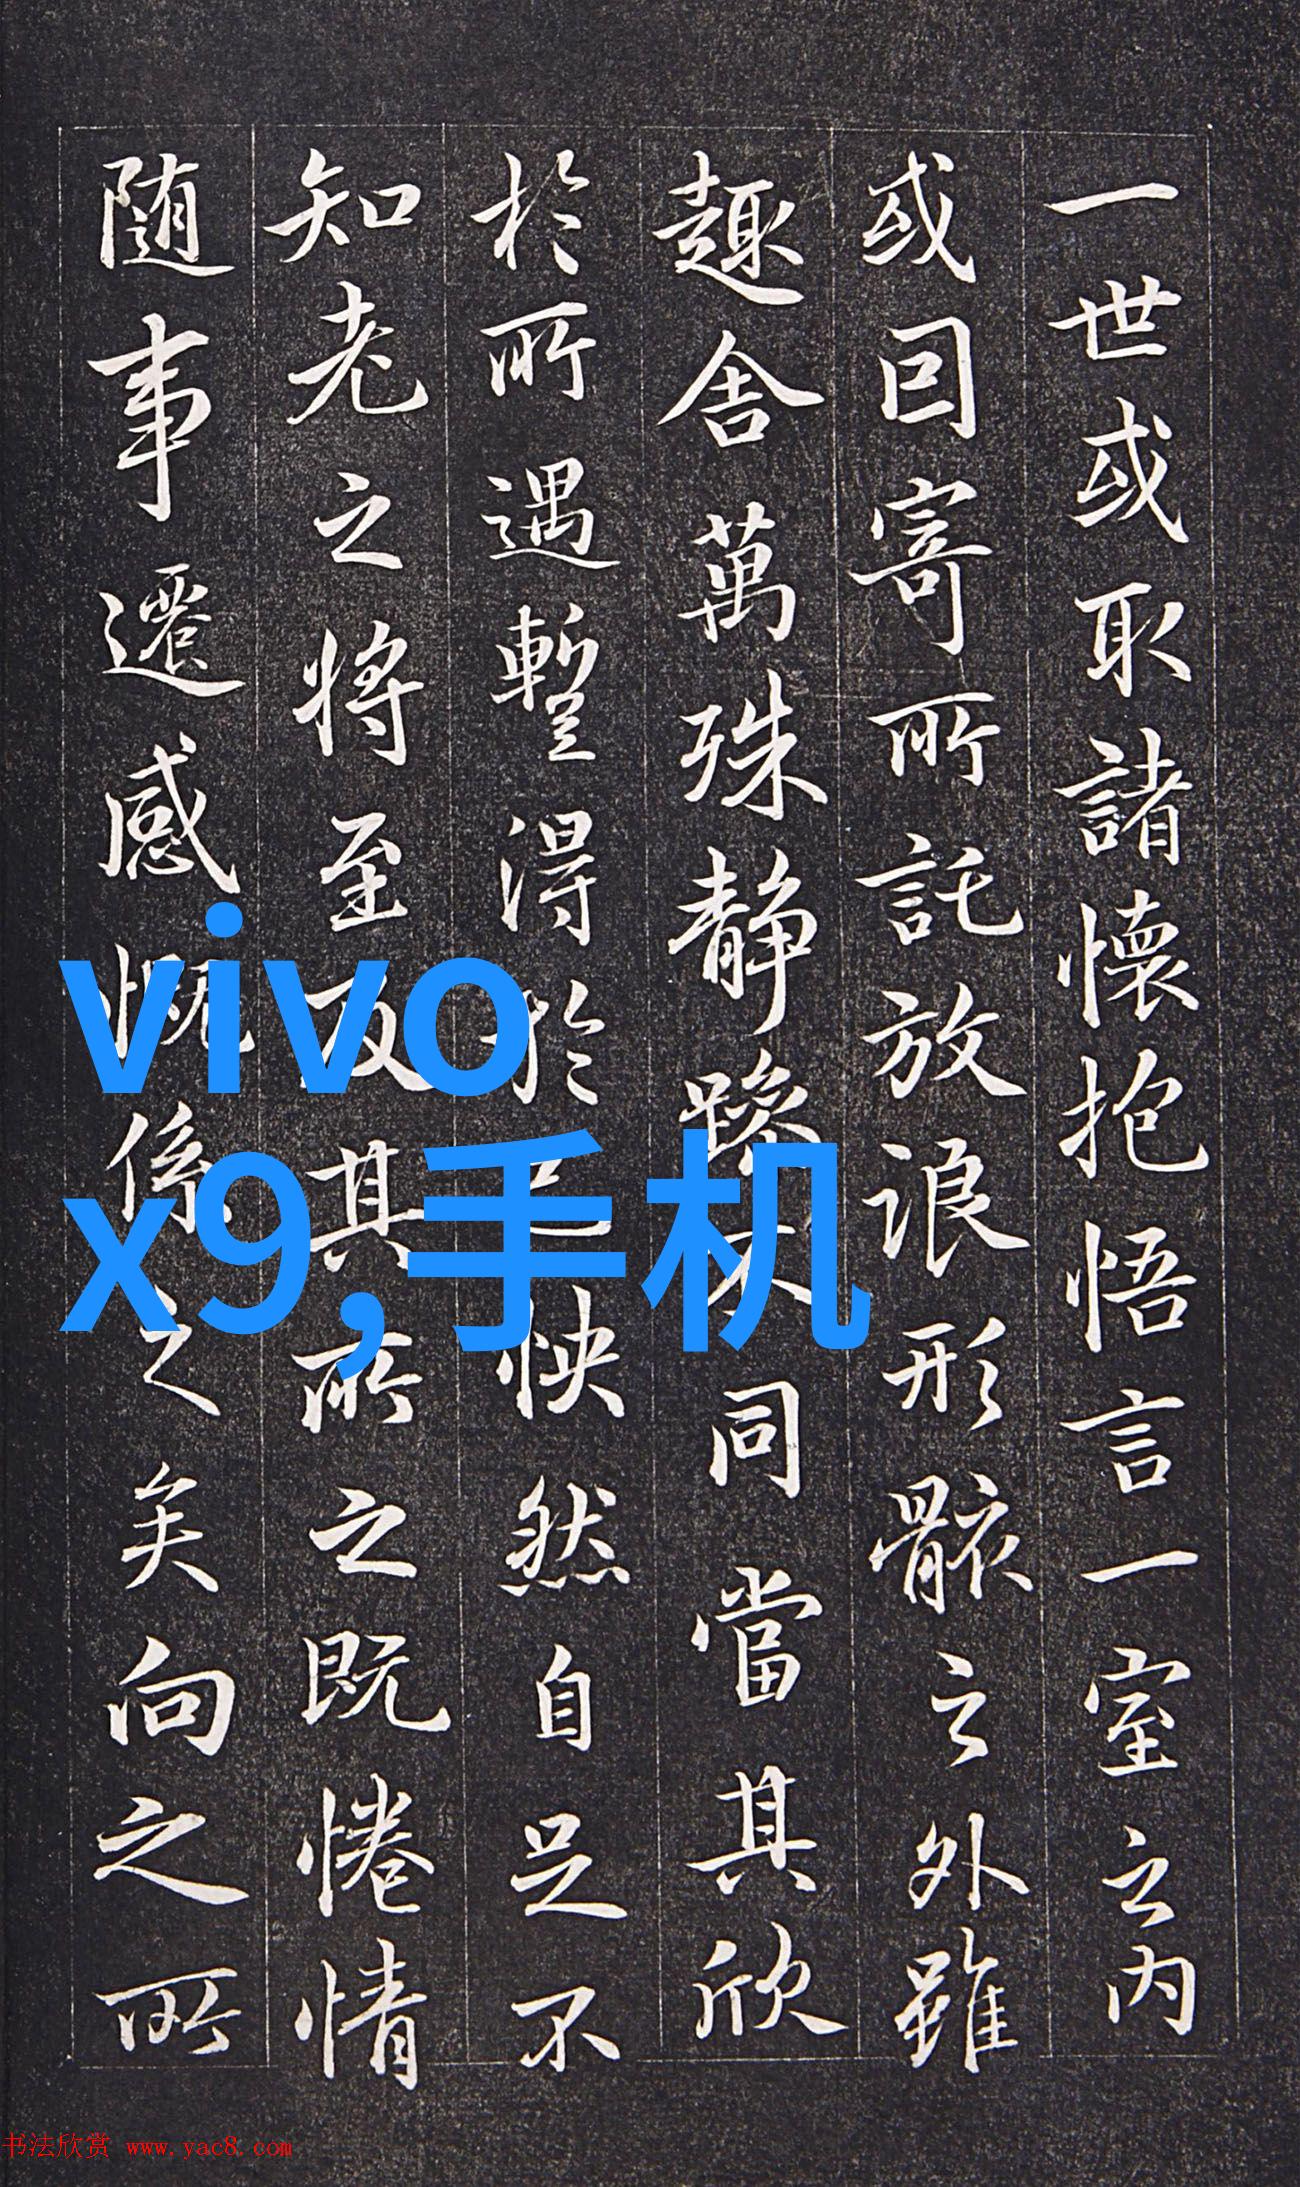 一世或取諸懷抱悟言一室之内
或因寄所託放浪形骸之外雖
趣舍萬殊静躁不同當其欣
於所遇暫得於己怏然自足不
知老之将至及其所之既惓情
随事遷感慨係之矣向之所
vivo
x9,手机
书法欣赏 www.yac8.com